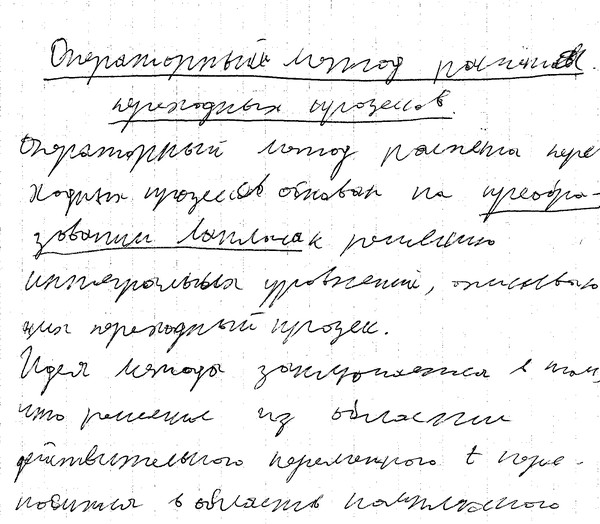 Операторный метод расчётов
переходных процессов.
Операторный метод расчёта пере
ходных процессов основан на преобра-
зовании Лапласа к решению
интегральных уравнений, описываю
щих переходный процес.
Идея метода заключается в том,
что решение из области
действительного переменного t пере-
носится в область комплексного